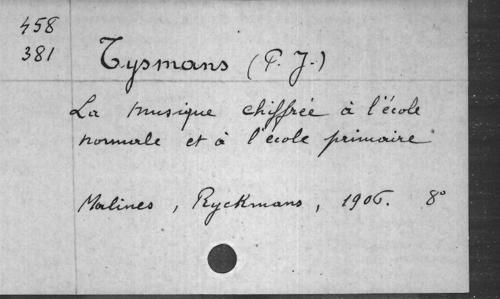 458
381
Tysmans (P. J.)
La musique chiffrée à l'école
normale et à l'école primaire
Malines, Ryckmans, 1906. 8°